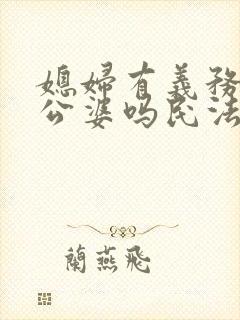 媳婦有義務
公婆嗎民法
蘭燕飛